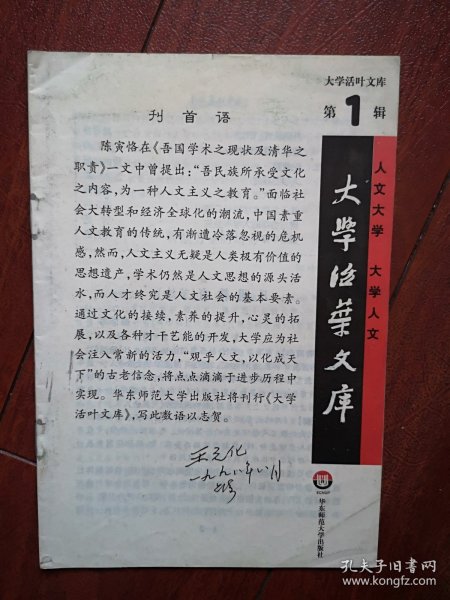 大学活叶文库
第1辑
人文大学 大学人文
大学活叶文库
华东师范大学出版社
刊首语
陈寅恪在《吾国学术之现状及清华之
职责》一文中曾提出：“吾民族所承受文化
之内容，为一种人文主义之教育。”面临社
会大转型和经济全球化的潮流，中国素重
人文教育的传统，有渐遭冷落忽视的危机
感，然而，人文主义无疑是人类极有价值的
思想遗产，学术仍然是人文思想的源头活
水，而人才终究是人文社会的基本要素。
通过文化的接续，素养的提升，心灵的拓
展，以及各种才干艺能的开发，大学应为社
会注入常新的活力，“观乎人文，以化成天
下”的古老信念，将点点滴滴于进步历程中
实现。华东师范大学出版社将刊行《大学
活叶文库》，写此数语以志贺。
王元化
一九九八年八月
孔夫子旧书网
www.kongfz.com